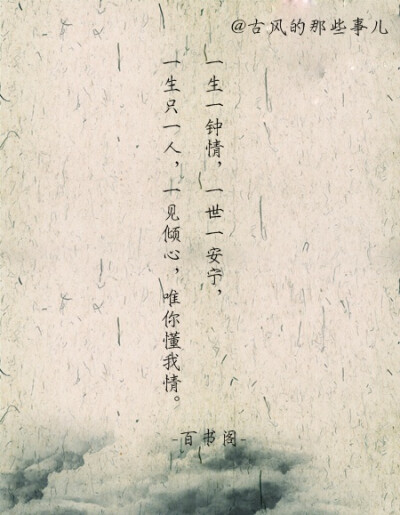 @古风的那些事儿
一生一钟情，一世一安宁，
一生只一人，一见倾心，唯你懂我情。
-百书阁-